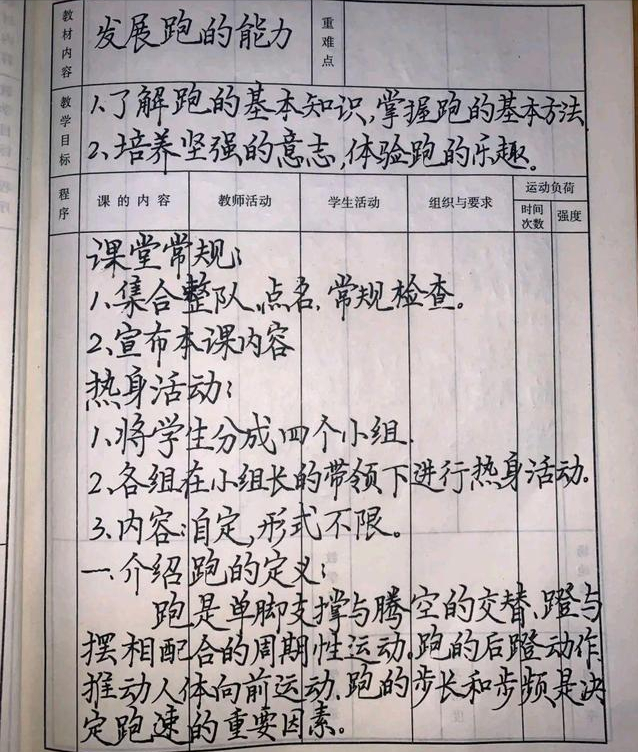 教材内容 发展跑的能力 重难点
教学目标 1.了解跑的基本知识,掌握跑的基本方法
2.培养坚强的意志,体验跑的乐趣。
程序 课的内容 教师活动 学生活动 组织与要求 运动负荷
时间次数 强度
课堂常规:
1.集合整队、点名、常规检查。
2.宣布本课内容
热身活动:
1.将学生分成四个小组.
2.各组在小组长的带领下进行热身活动.
3.内容:自定,形式不限。
一.介绍跑的定义:
跑是单脚支撑与腾空的交替、蹬与
摆相配合的周期性运动.跑的后蹬动作
推动人体向前运动.跑的步长和步频是决
定跑速的重要因素。